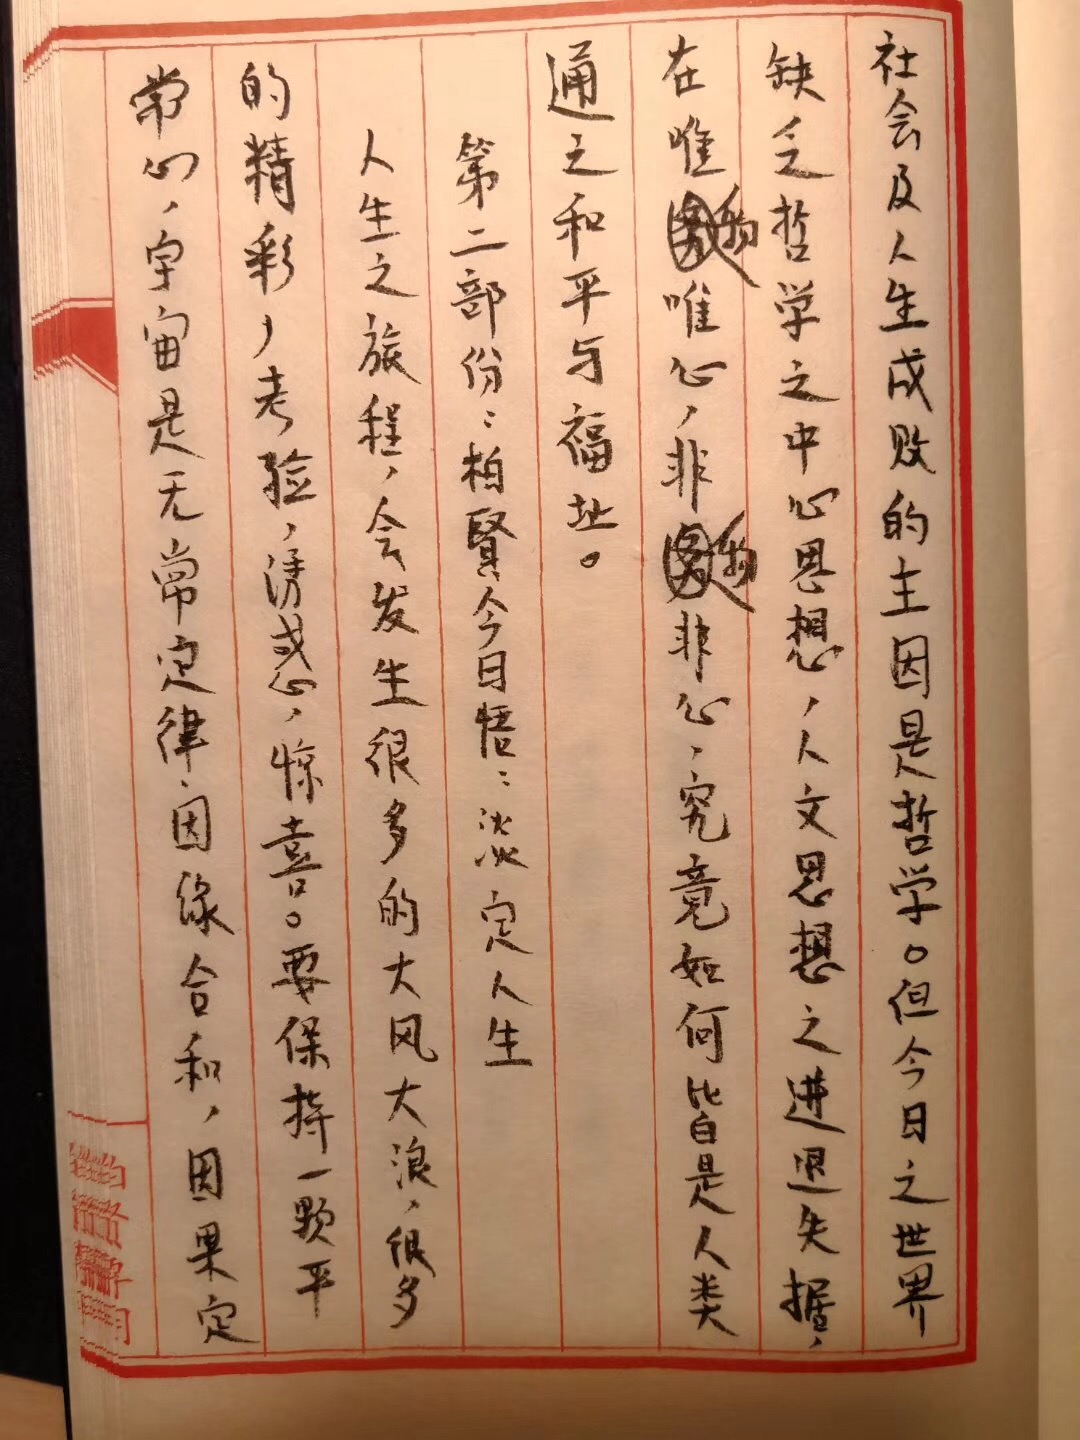 社会及人生成败的主因是哲学。但今日之世界
缺乏哲学之中心思想，人文思想之进退失据，
在唯物唯心，非物非心，究竟如何皆是人类
通之和平与福址。
第二部份：柏賢今日悟：淡定人生
人生之旅程，会发生很多的大风大浪，很多
的精彩，考验，诱惑，惊喜。要保持一颗平
常心，宇宙是无常定律，因缘合和，因果定